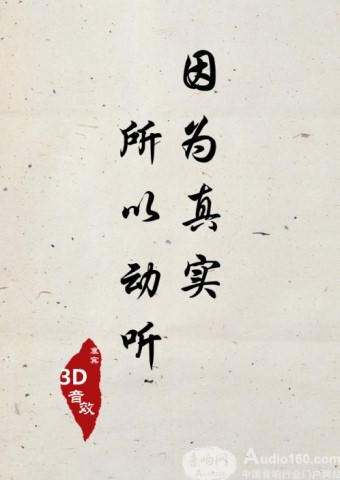 因为真实
所以动听
真实
3D
音效
音响网
Audio160.com
中国音响行业门户网站